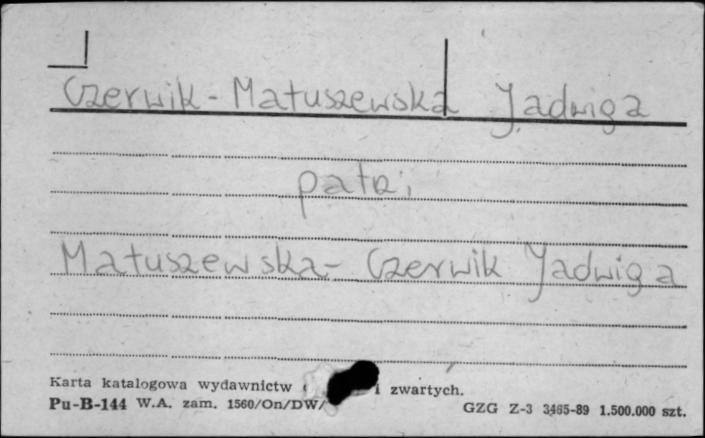 Czerwik - Matuszewska Jadwiga
patrz
Matuszewska - Czerwik Jadwiga
Karta katalogowa wydawnictw i zwartych.
Pu-B-144 W.A. zam. 1560/On/DW/
GZG Z-3 3465-89 1.500.000 szt.